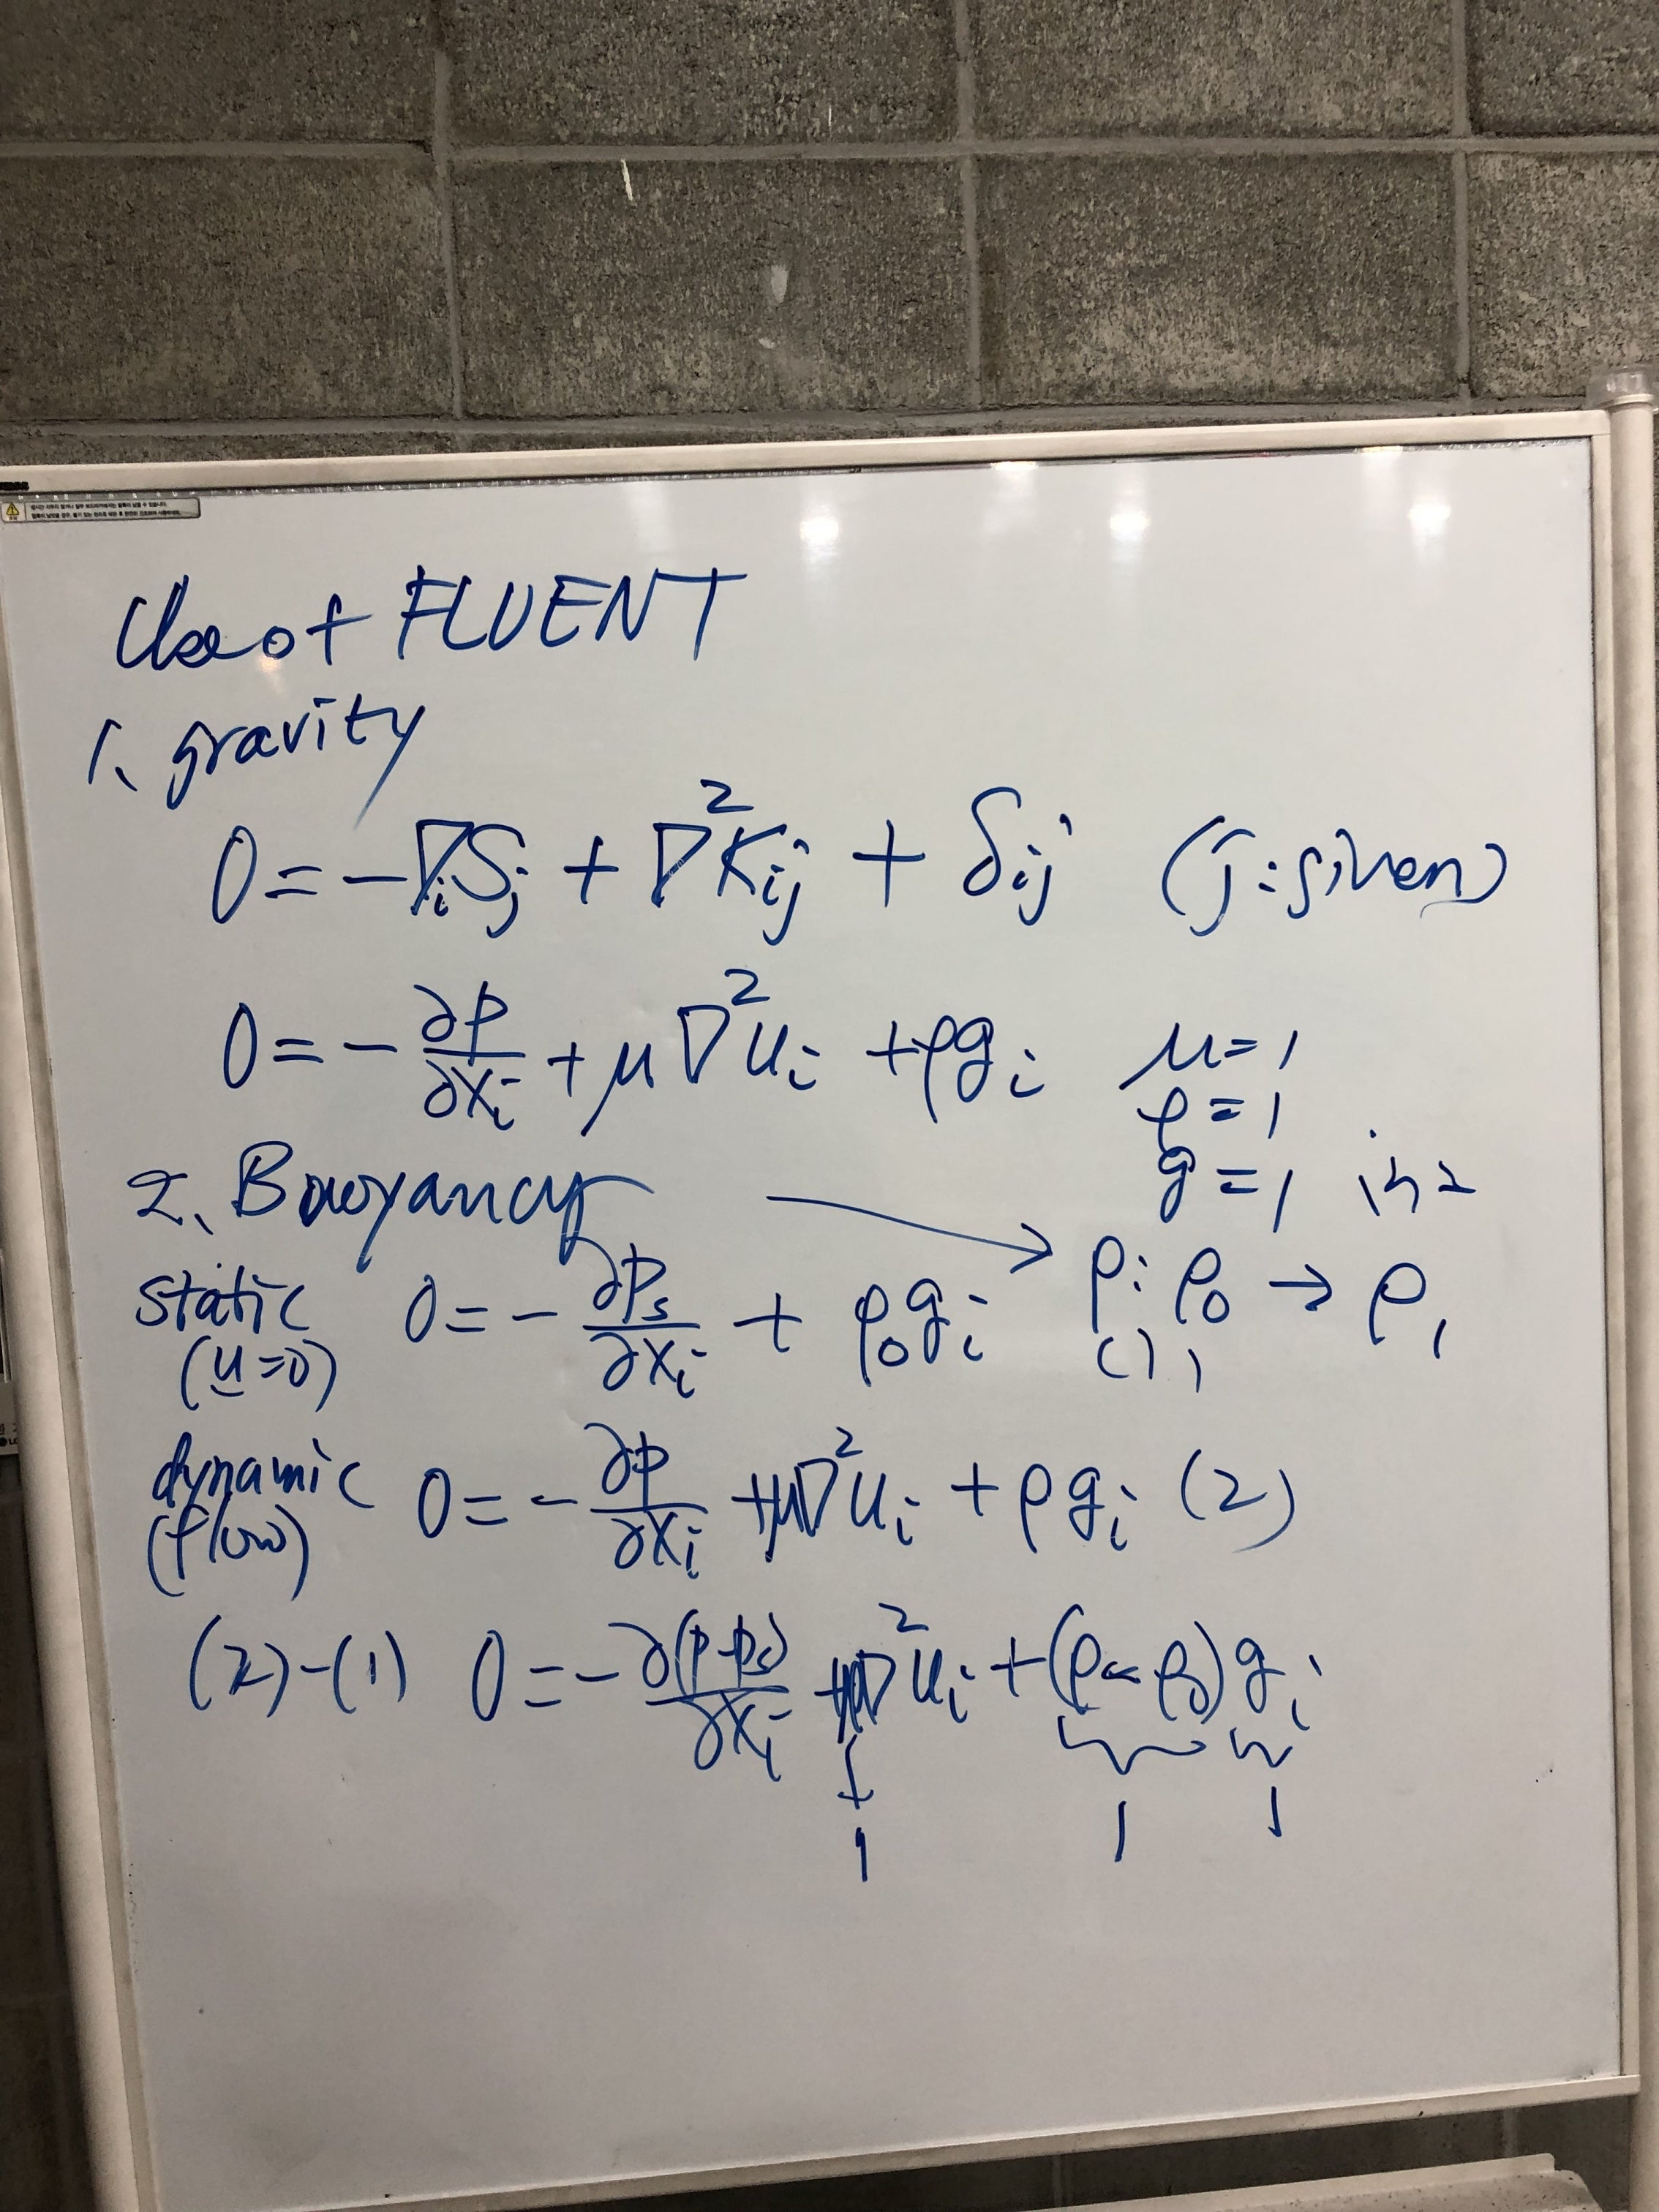 Use of FLUENT
1. gravity
0 = -∇ᵢSⱼ + ∇²Kᵢⱼ + δᵢⱼ (j: given)
0 = -∂p/∂xᵢ + μ∇²uᵢ + ρgᵢ μ=1
ρ=1
g=1 in
2. Buoyancy → ρ: ρ₀ → ρ₁
static (u=0) 0 = -∂pₛ/∂xᵢ + ρ₀gᵢ (1)
dynamic (flow) 0 = -∂p/∂xᵢ + μ∇²uᵢ + ρgᵢ (2)
(2)-(1) 0 = -∂(p-pₛ)/∂xᵢ + μ∇²uᵢ + (ρ-ρ₀)gᵢ
1 1 1